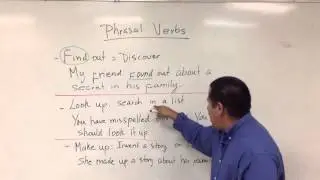 Phrasal Verbs
- Find out = Discover
My friend found out about a
secret in his family.
- Look up: search in a list
You have misspelled You
should look it up
- Make up: Invent a story or
She made up a story about her